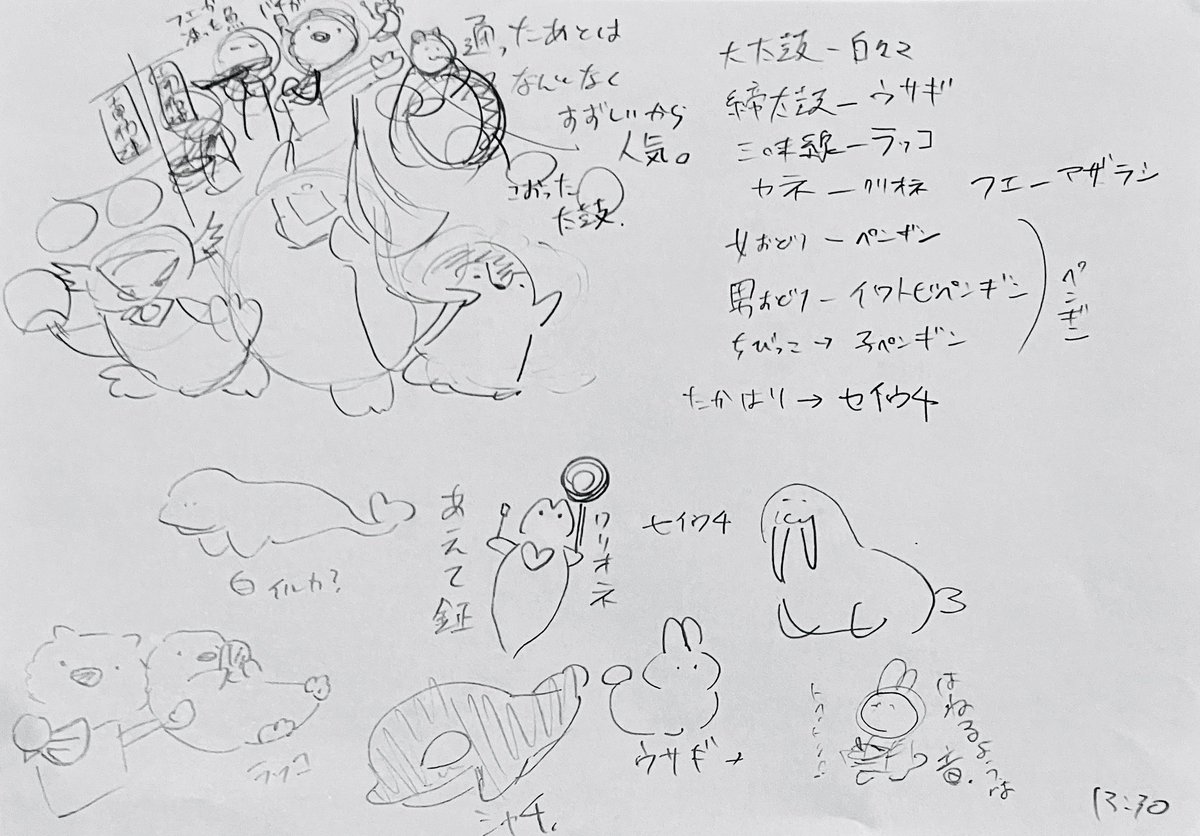 フエが
凍った魚
通ったあとは
なんとなく
すずしいから
人気。
こおった
太鼓.
大太鼓ー白クマ
締太鼓ーウサギ
三味線ーラッコ
カネークリオネ フエーアザラシ
女おどりーペンギン
男おどりーイワトビペンギン
ちびっこ→子ペンギン
ペンギン
たかはり→セイウチ
白イルカ?
あえて鉦
クリオネ
セイウチ
ラッコ
シャチ.
ウサギ→
トントントン
はねるような
音.
13:30